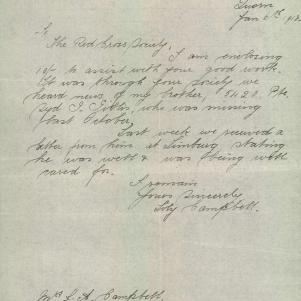 Jan 6th
To
The Red Cross Society,
I am enclosing
10/- to assist with your good work
It was through your society we
heard news of my brother, 3428. Pte
Syd J. who was missing
last October,
Last week we received a
letter from him at Limburg stating
he was well & was being well
cared for.
I remain
Yours Sincerely
Campbell.
Mrs L. A. Campbell.